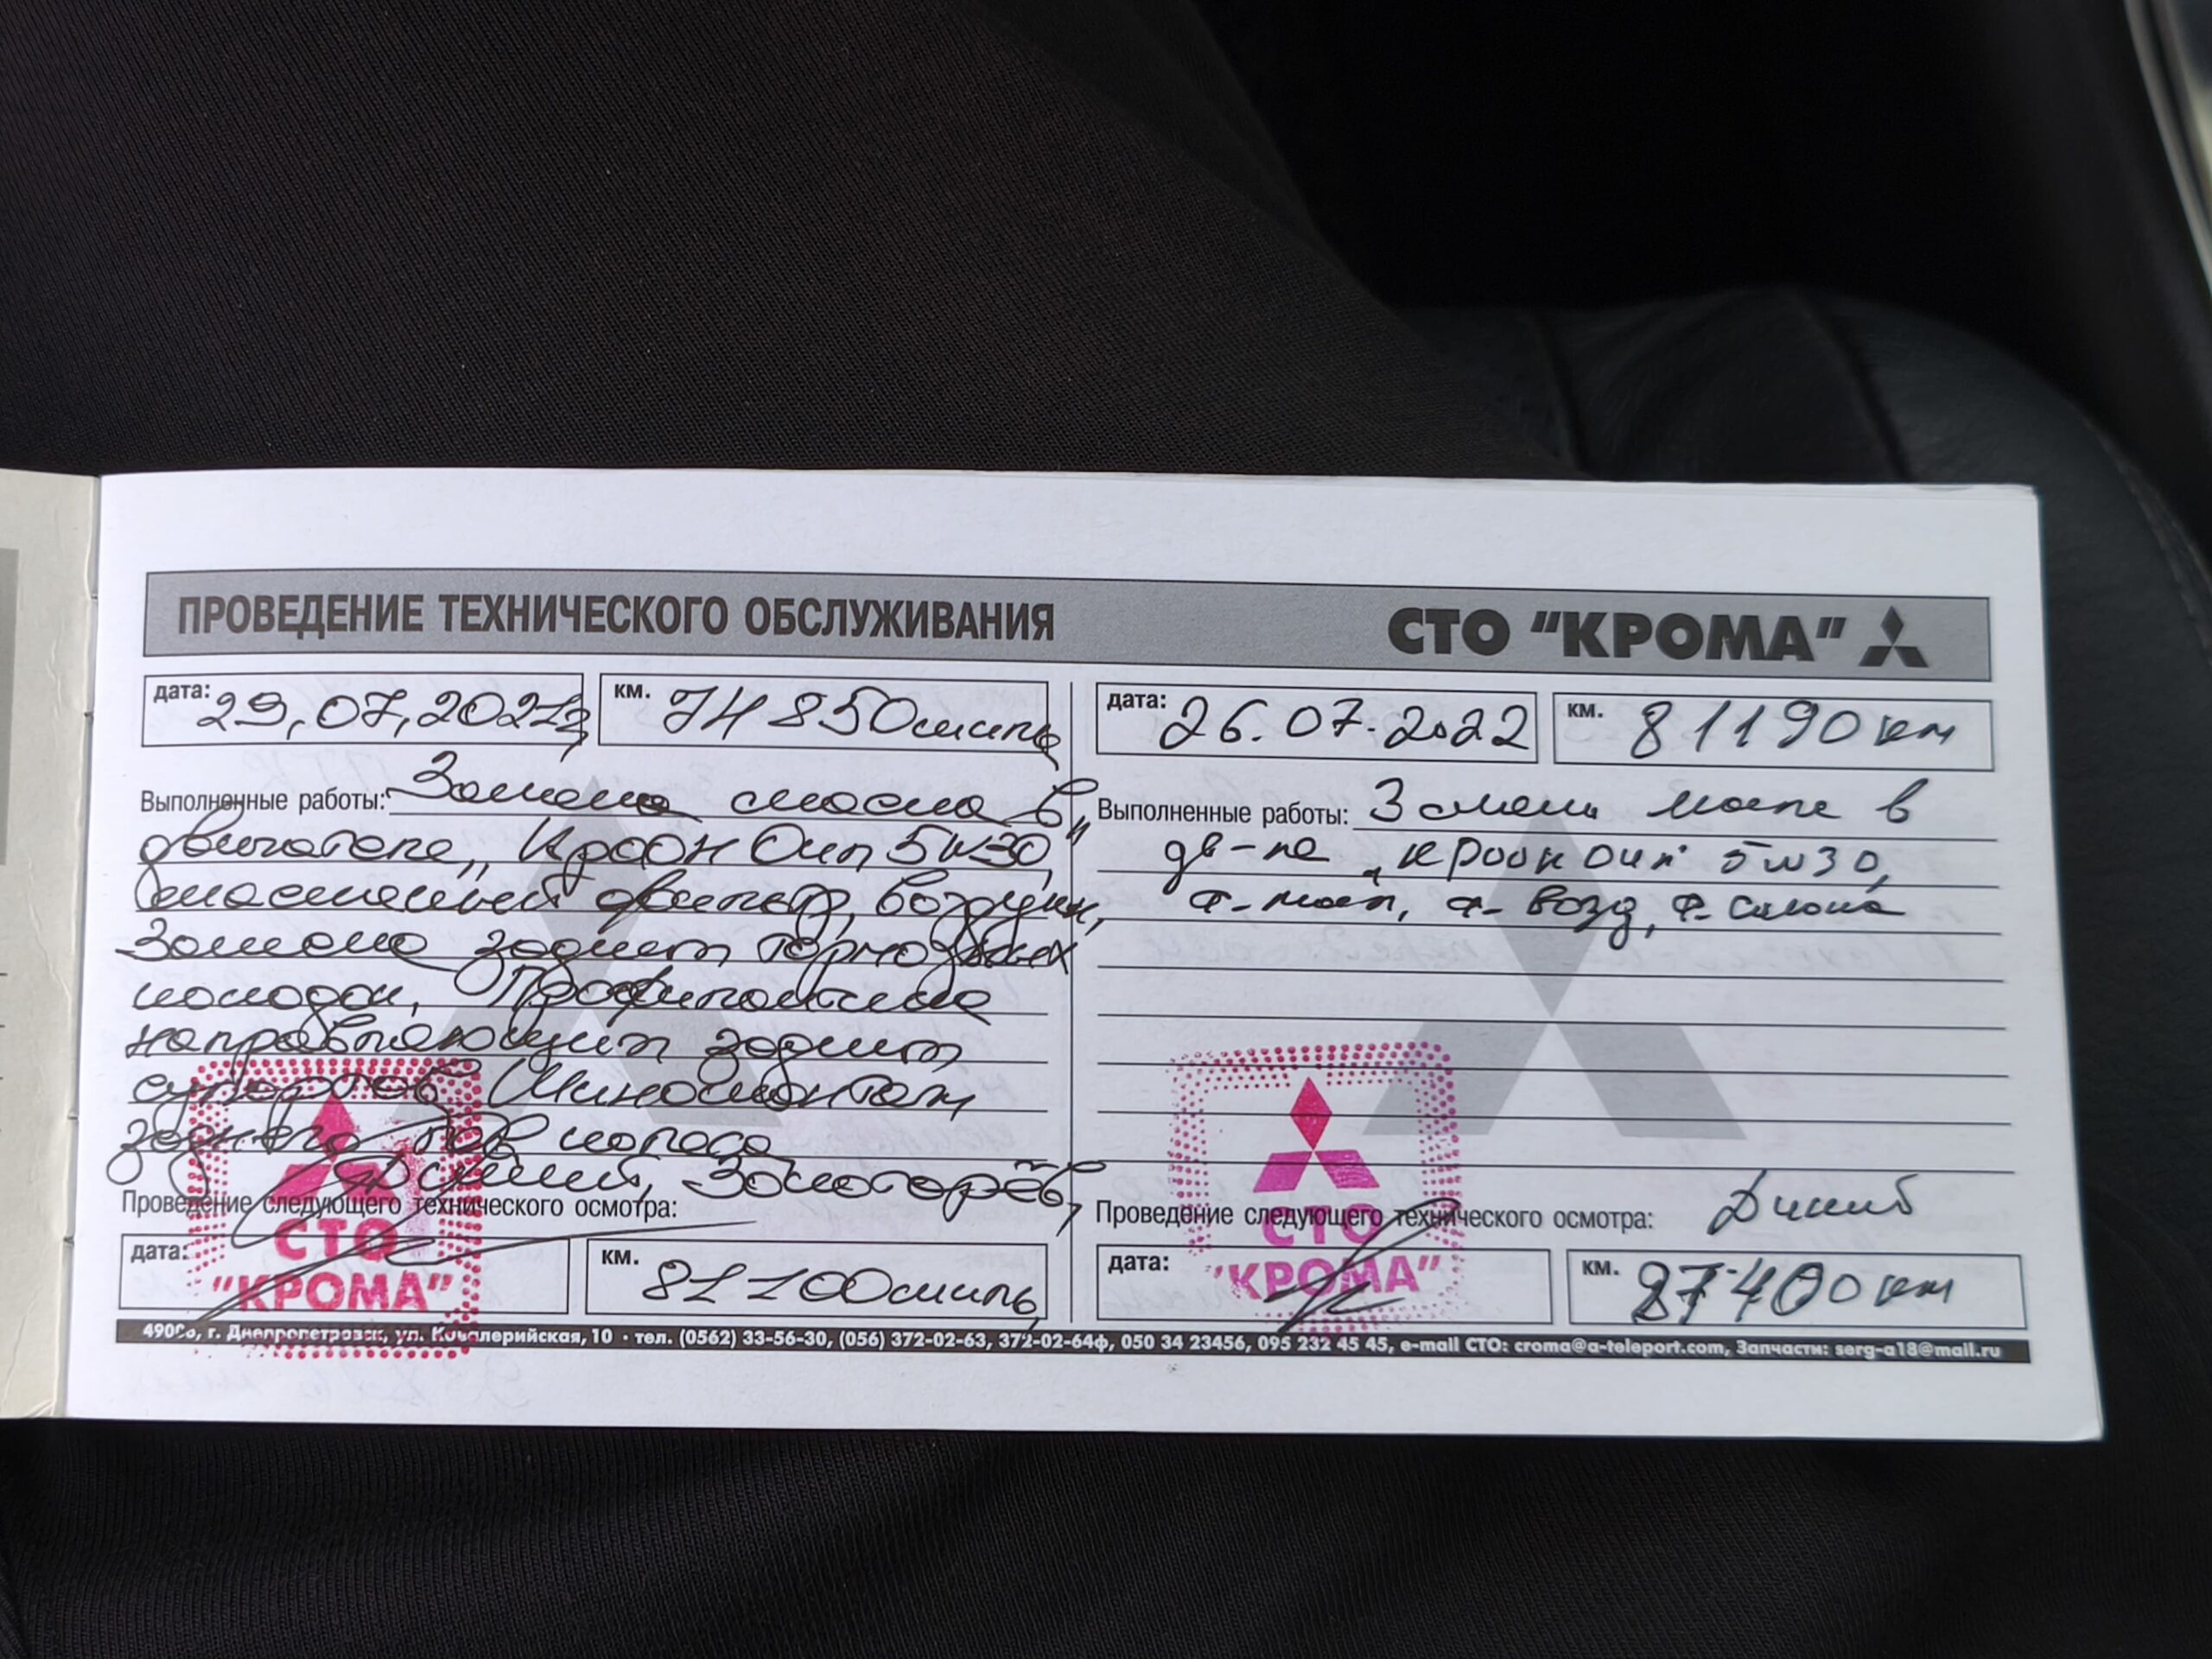 ПРОВЕДЕНИЕ ТЕХНИЧЕСКОГО ОБСЛУЖИВАНИЯ
СТО "КРОМА"
дата: 29.07.2021г.
км. 74850миль
Выполненные работы: Замена масла в
двигателе „Кроон Оил 5W30",
масляный фильтр, воздушн,
Замена задних тормозных
колодок, Профилактика
направляющих задних
супортов Шиномонтаж
заднего колеса
Золоторёв,
Проведение следующего технического осмотра:
дата:
км. 81100миль
СТО
"КРОМА"
дата: 26.07.2022
км. 81190 км
Выполненные работы: Замена масла в
дв-ле „Кроон Оил" 5w30,
ф-масл, ф-возд, ф-салона
Проведение следующего технического осмотра:
дата:
км. 87400 км
СТО
"КРОМА"
г. Днепропетровск, ул. Кавалерийская, 10 · тел. (0562) 33-56-30, (056) 372-02-63, 372-02-64ф, 050 34 23456, 095 232 45 45, e-mail СТО: croma@a-teleport.com, Запчасти: serg-a18@mail.ru